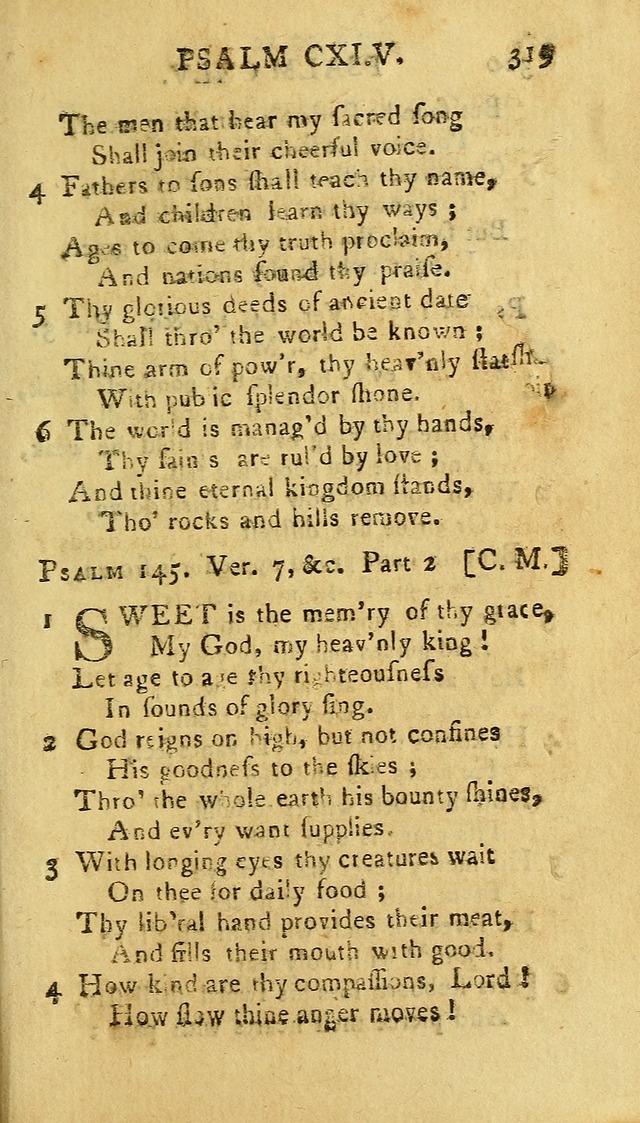 PSALM CXLV. 319
The men that hear my ſacred ſong
Shall join their cheerful voice.
4 Fathers to ſons ſhall teach thy name,
And children learn thy ways ;
Ages to come thy truth proclaim,
And nations ſound thy praiſe.
5 Thy glorious deeds of ancient date
Shall thro' the world be known ;
Thine arm of pow'r, thy heav'nly ſtate
With public ſplendor ſhone.
6 The world is manag'd by thy hands,
Thy ſaints are rul'd by love ;
And thine eternal kingdom ſtands,
Tho' rocks and hills remove.
PSALM 145. Ver. 7, &c. Part 2 [C. M.]
1 SWEET is the mem'ry of thy grace,
My God, my heav'nly king !
Let age to age thy righteouſneſs
In ſounds of glory ſing.
2 God reigns on high, but not confines
His goodneſs to the ſkies ;
Thro' the whole earth his bounty ſhines,
And ev'ry want ſupplies.
3 With longing eyes thy creatures wait
On thee for daily food ;
Thy lib'ral hand provides their meat,
And fills their mouth with good.
4 How kind are thy compaſſions, Lord !
How ſlow thine anger moves !